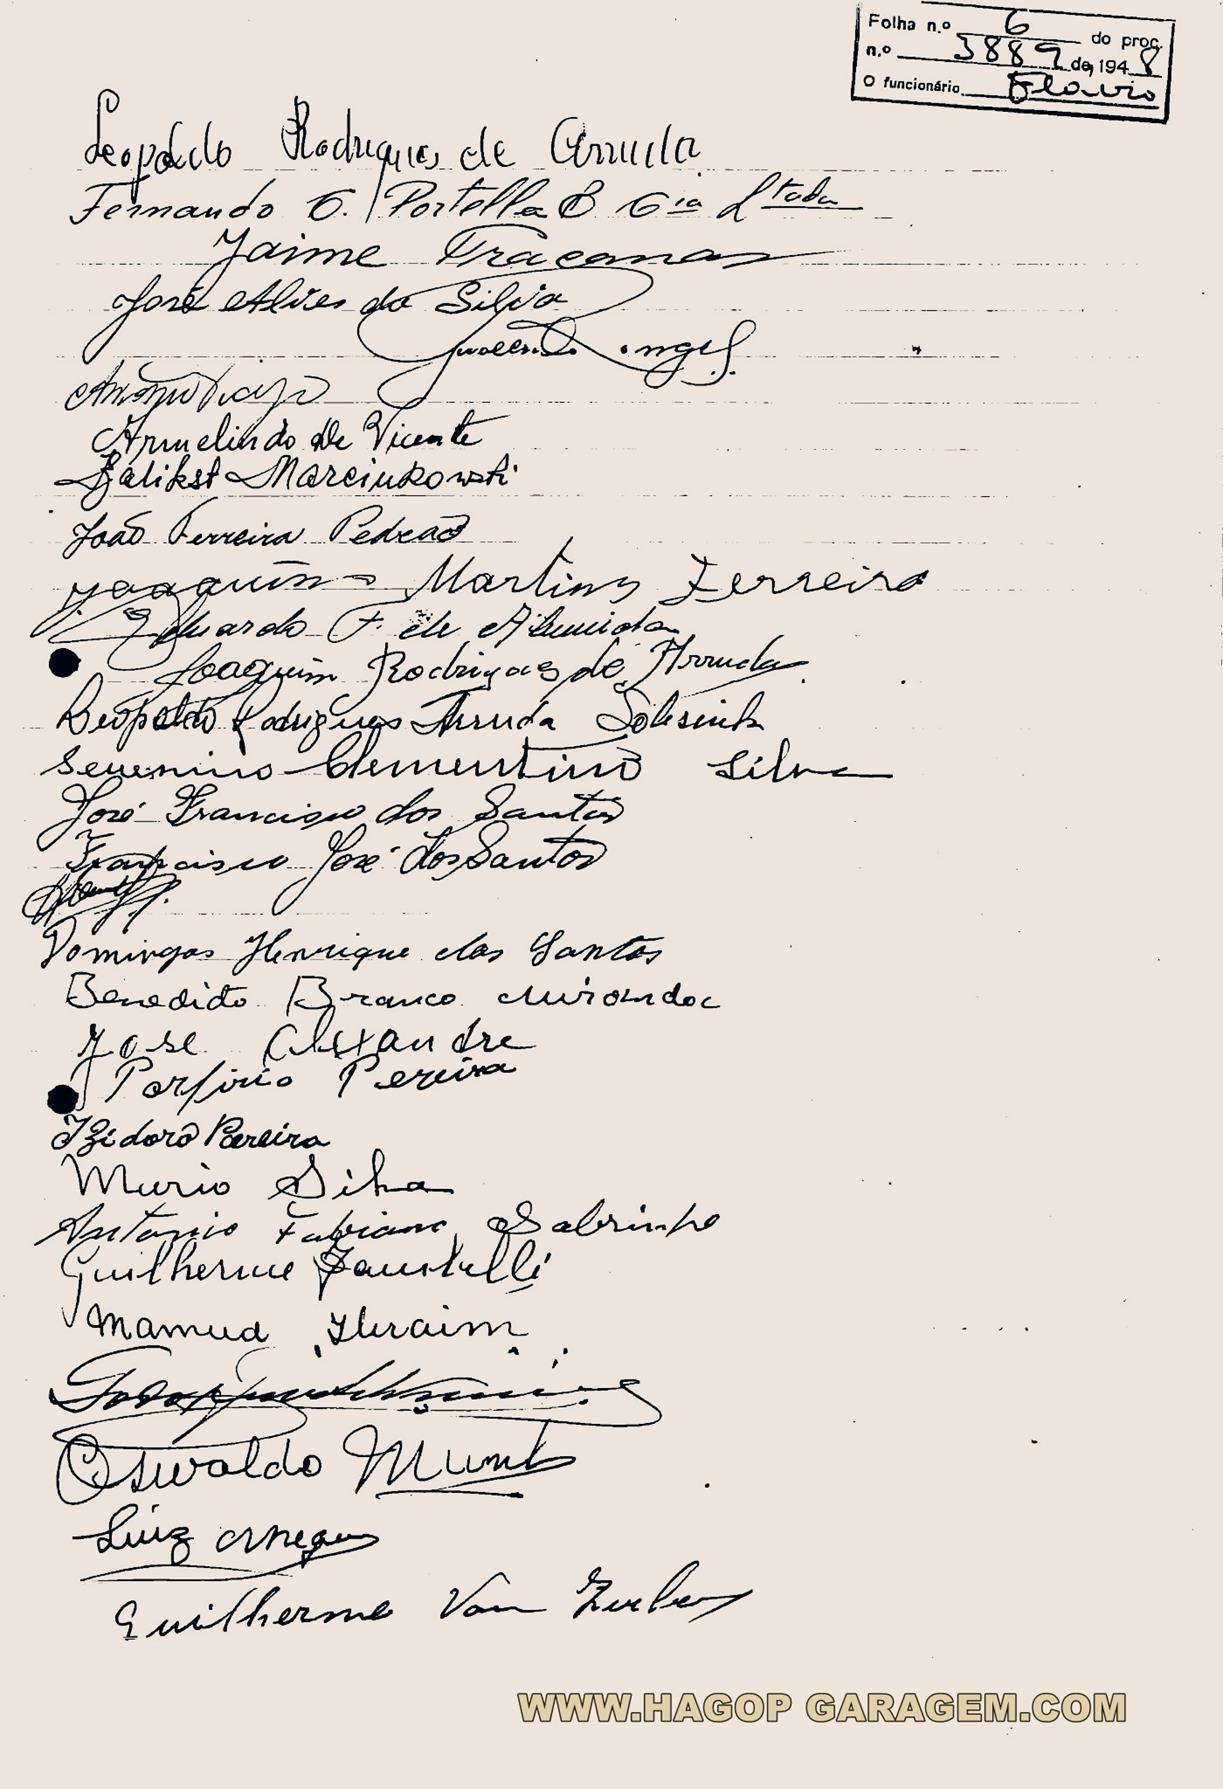 Folha n.º 6 do proc.
n.º 3889 de 1948
O funcionário Flavio
Leopoldo Rodrigues de Arruda
Fernando C. Portella & Cia Ltda
Jaime
José Alves da Silva
Armelindo De Vicente
Kalikst Marcinkowski
João Ferreira Pedrão
Joaquim Martins Ferreira
Eduardo F. de Almeida
Joaquim Rodrigues de Arruda
Leopoldo Rodrigues Arruda Sobrinho
Severino Clementino Silva
José Francisco dos Santos
Francisco José dos Santos
Domingos Henrique dos Santos
Benedito Branco Miranda
José Alexandre
Porfirio Pereira
Izidoro Pereira
Murio Silva
Antonio Fabiano Sobrinho
Guilherme Zanitelli
Mamud Ibraim
Oswaldo
Luiz
Guilherme Van
WWW.HAGOP GARAGEM.COM